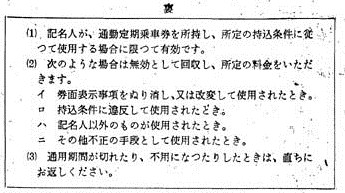 裏
(1) 記名人が、通勤定期乗車券を所持し、所定の持込条件に従
つて使用する場合に限つて有効です。
(2) 次のような場合は無効として回収し、所定の料金をいただ
きます。
イ 券面表示事項をぬり消し、又は改変して使用されたとき。
ロ 持込条件に違反して使用されたとき。
ハ 記名人以外のものが使用されたとき。
ニ その他不正の手段として使用されたとき。
(3) 通用期間が切れたり、不用になつたりしたときは、直ちに
お返しください。